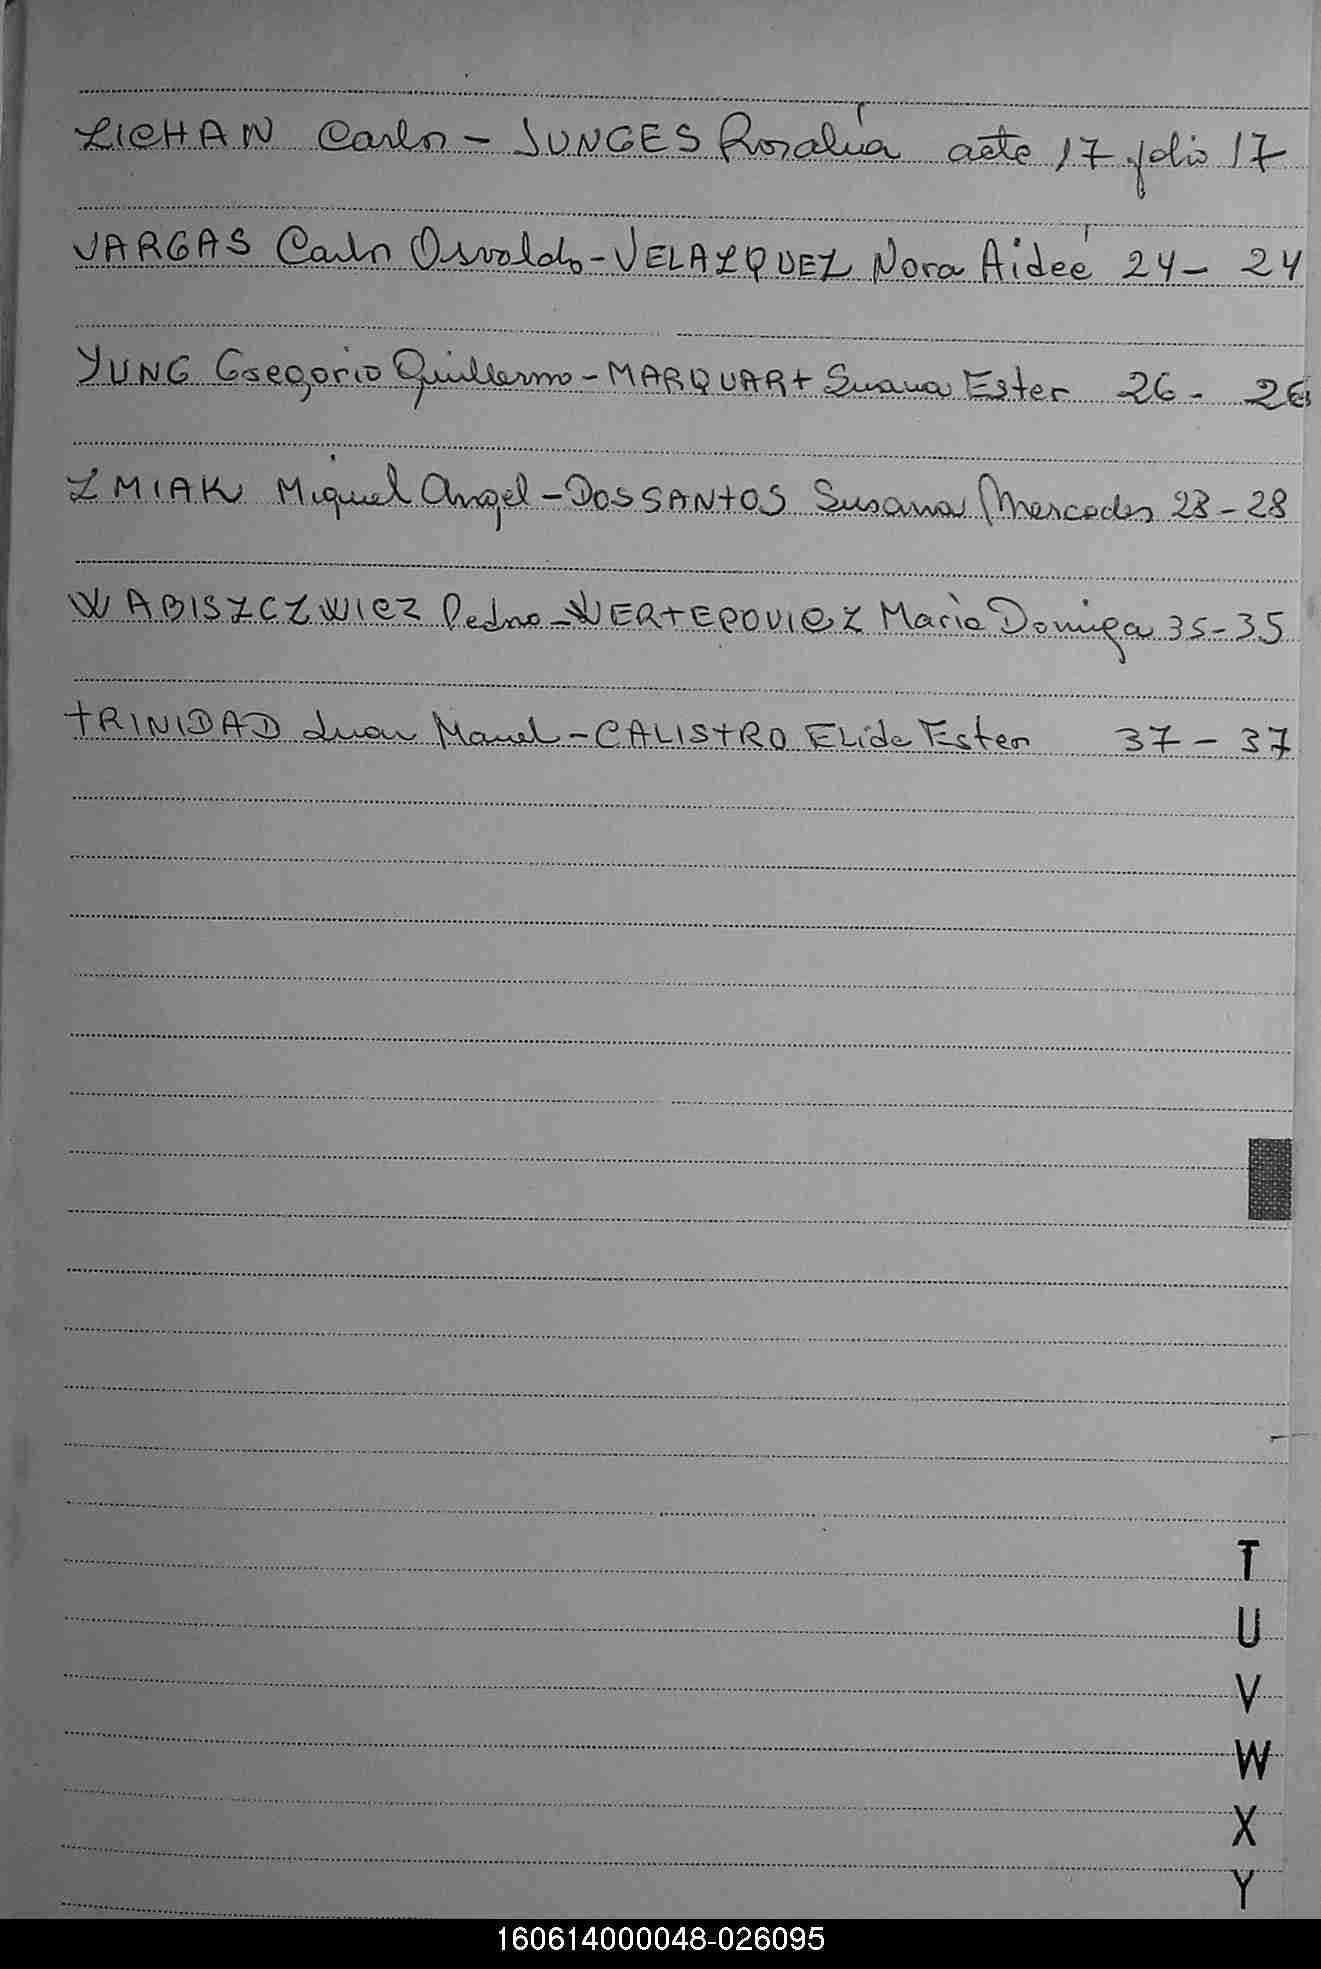 ZICHAN Carlos - JUNGES Rosalía acta 17 folio 17
VARGAS Carlos Osvaldo - VELAZQUEZ Nora Aideé 24 - 24
YUNG Gregorio Guillermo - MARQUART Susana Ester 26 - 26
ZMIAK Miguel Angel - DOSSANTOS Susana Mercedes 28 - 28
WABISZCZWICZ Pedro - WERTEPOVICZ Maria Dominga 35 - 35
TRINIDAD Juan Manuel - CALISTRO Elida Ester 37 - 37
T
U
V
W
X
Y
160614000048-026095